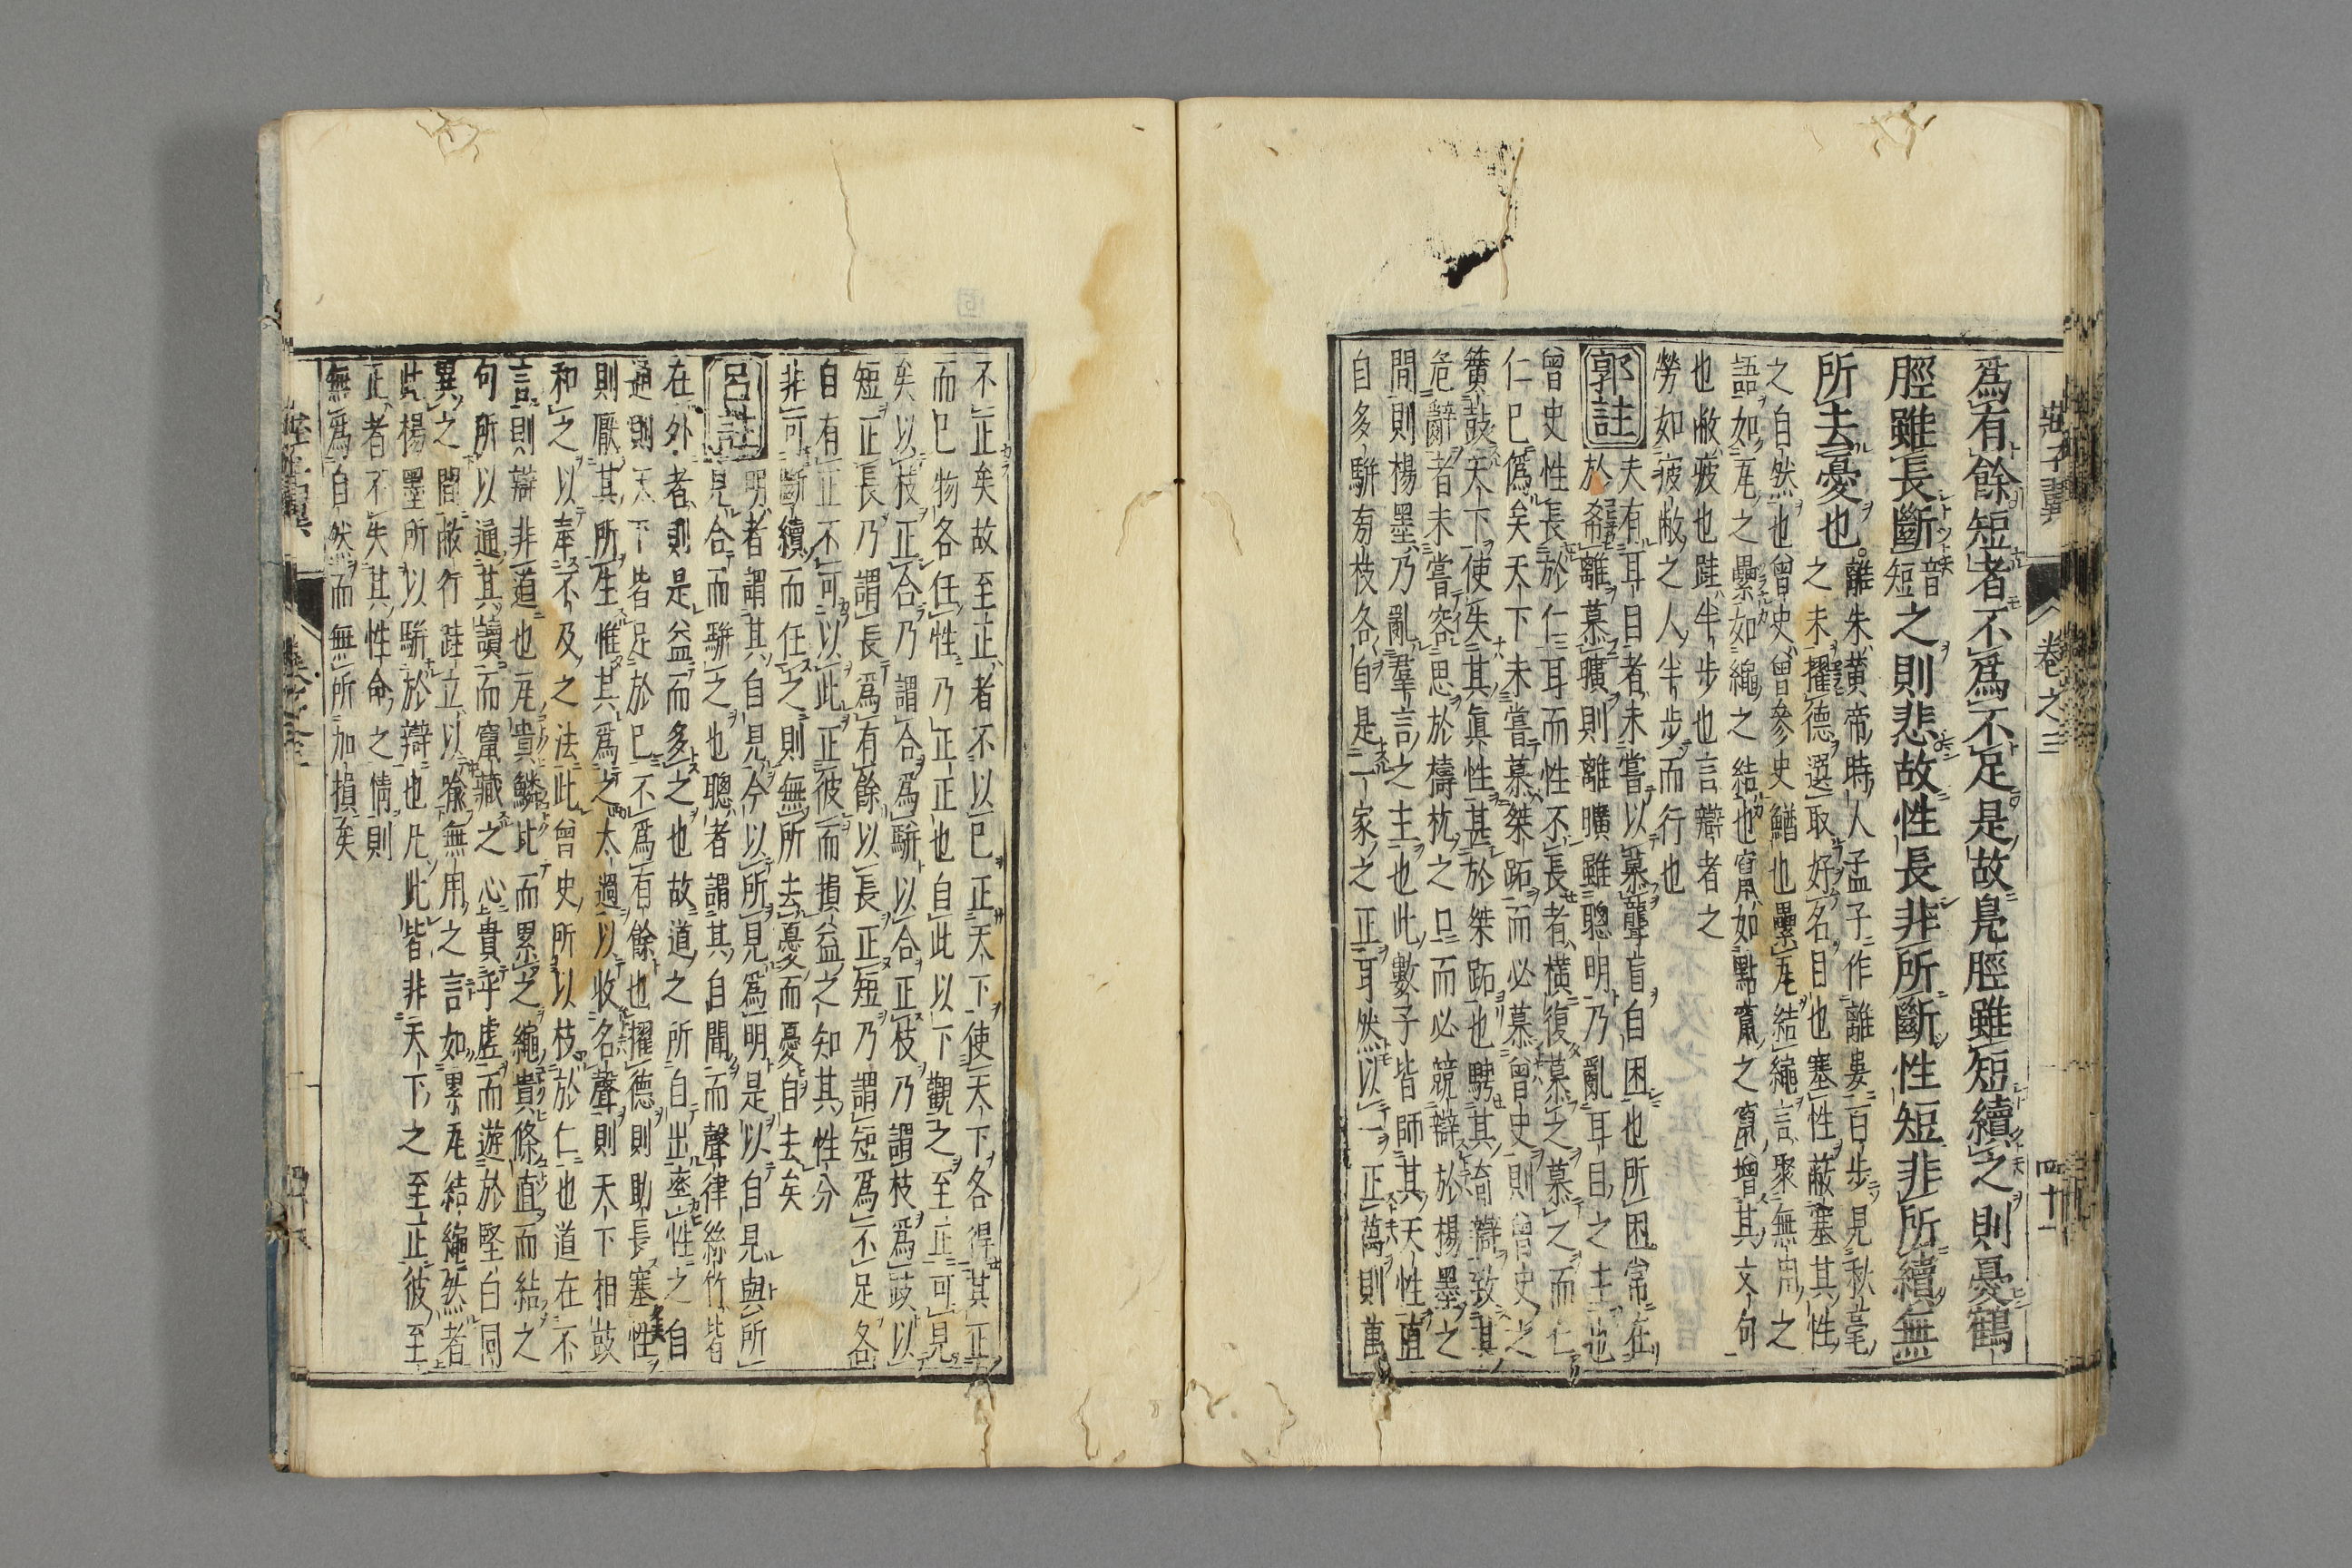 莊子翼 卷之三 四十一
爲有餘短者不爲不足是故鳧脛雖短續之則憂鶴
脛雖長斷音短之則悲故性長非所斷性短非所續無
所去憂也離朱黃帝時人孟子作離婁百步見秋毫
之未擢德選取好名目也塞性蔽塞其性
之自然也曾史曾參史鰌也纍瓦結繩言聚無用之
語如瓦之纍如繩之結也竄如點竄之竄增其文句
也敝疲也跬半步也言辯者之
勞如疲敝之人半步而行也
郭註 夫有耳目者未嘗以慕聾盲自困也所困常在
於希離慕曠則離曠雖聰明乃亂耳目之主也
曾史性長於仁耳而性不長者橫復慕之慕之而仁
仁已僞矣天下未嘗慕桀跖而必慕曾史則曾史之
簧鼓天下使失其眞性甚於桀跖也騁其奇辯致其
危辭者未嘗容思於檮杌之口而必競辯於楊墨之
間則楊墨乃亂羣言之主也此數子皆師其天性直
自多駢旁枝各自是一家之正耳然以一正萬則萬
不正矣故至正者不以已正天下使天下各得其正
而已物各任性乃正正也自此以下觀之至正可見
矣以枝正合乃謂合爲駢以合正枝乃謂枝爲跂以
短正長乃謂長爲有餘以長正短乃謂短爲不足各
自有正不可以此正彼而損益之知其性分
非可斷續而任之則無所去憂而憂自去矣
呂註 明者謂其自見今以所見爲明是以自見與所
見合而駢之也聰者謂其自聞而聲律絲竹皆
在外者則是益而多之也故道之所自出壅性之自
通則天下皆足於已不爲有餘也擢德則助長塞性
則厭其所生惟其爲之太過以收名聲則天下相鼓
和之以奉不及之法此曾史所以枝於仁也道在不
言則辯非道也瓦貴鱗比而累之繩貴條直而結之
句所以通其讀而竄藏之心貴乎虛而遊於堅白同
異之間敝行跬立以喩無用之言如累瓦結繩然者
此楊墨所以駢於辯也凡此皆非天下之至正彼至
正者不失其性命之情則
無爲自然而無所加損矣